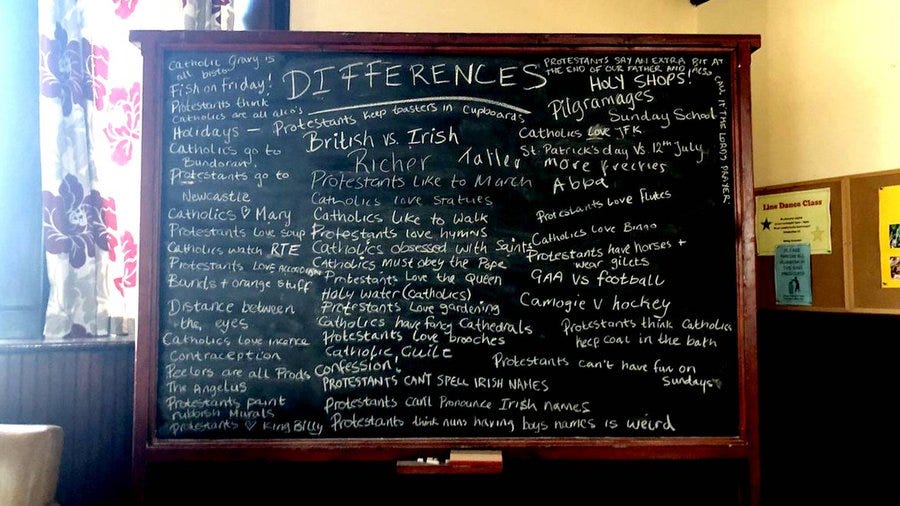 DIFFERENCES
Catholic Gravy is
all bisto
Fish on friday!
Protestants think
Catholics are all
Holidays -
Catholics go to
Bundoran.
Protestants go to
Newcastle
Catholics ♡ Mary
Protestants love soup
Catholics watch RTE
Protestants LOVE ACCORDION
Bands + orange stuff
Distance between
the eyes
Catholics love incense
Contraception
Peelers are all Prods
The Angelus
Protestants paint
rubbish Murals
Protestants ♡ King Billy
Protestants keep toasters in cupboards
British vs. Irish
Richer Taller
Protestants like to March
Catholics love statues
Catholics like to walk
Protestants love hymns
Catholics obsessed with Saints
Catholics must obey the Pope
Protestants Love the Queen
Holy water (Catholics)
Protestants Love gardening
Catholics have fancy Cathedrals
Protestants love brooches
Catholic Guilt
Confession!
PROTESTANTS CAN'T SPELL IRISH NAMES
Protestants can't Pronounce Irish names
Protestants think nuns having boys names is weird
PROTESTANTS SAY AN EXTRA BIT AT
THE END OF OUR FATHER AND ALSO
CALL IT THE LORDS PRAYER
HOLY SHOPS!
Pilgramages
Sunday School
Catholics Love JFK
St. Patrick's day VS. 12th July
more freckles
Abba
Protestants love flutes
Catholics Love Bingo
Protestants have horses +
wear gilets
GAA VS football
Camogie V hockey
Protestants think Catholics
keep coal in the bath
Protestants can't have fun on
Sundays
Line Dance Class